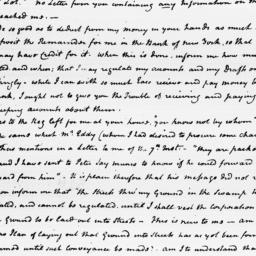 Lot." No Letter from you containing any Information on the
reached me. —
so good as to deduct from my money in your hands as much
forward the Remainder for me in the Bank of New York, so that
may have credit for it. When this is done, inform me how much
and when; that I may regulate my accounts and my Drafts on
which I can with as much Ease receive and pay money to
I ought not to give you the Trouble of receiving and paying
keeping accounts about them.
as to the Keg left for me at your house, you know not by whom
came which Mr. Eddy (whom I had desired to procure some
thus mentions in a Letter to me of 9 Inst. "They are packed
and I have sent to Peter Jay Munro to know if he could forward
from him". It is plain therefore that his message did not
inform me that "the Street thro' my Ground in the Swamp
and cannot be regulated, until I shall vest the Corporation
Ground to be laid out into Streets — This is new to me — am
Plan of laying out that Ground into Streets has as yet been
until such Conveyance be made? am I to understand that